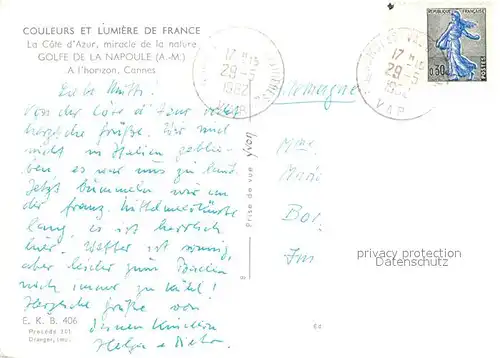 COULEURS ET LUMIÈRE DE FRANCE
La Côte d'Azur, miracle de la nature
GOLFE DE LA NAPOULE (A.-M.)
A l'horizon, Cannes
Liebe Mutti!
Von der Côte d'Azur recht
herzliche Grüße. Wir sind
nicht in Italien geblie-
ben, es war uns zu laut.
Jetzt bummeln wir an
der franz. Mittelmeerküste
lang, es ist herrlich
hier. Wetter ist sonnig,
aber leider zum Baden
noch immer zu kühl!
Herzliche Grüße von
Deinen Kindern
Helga + Dieter
E. K. B. 406
Procédé 301
Draeger, imp.
Prise de vue yvon
17 H 15
29-5
1962
VAR
Allemagne
17 H 15
29-5
1962
VAR
RÉPUBLIQUE FRANÇAISE
0,30
POSTES
Mme
Bor.
privacy protection
Datenschutz
Ed